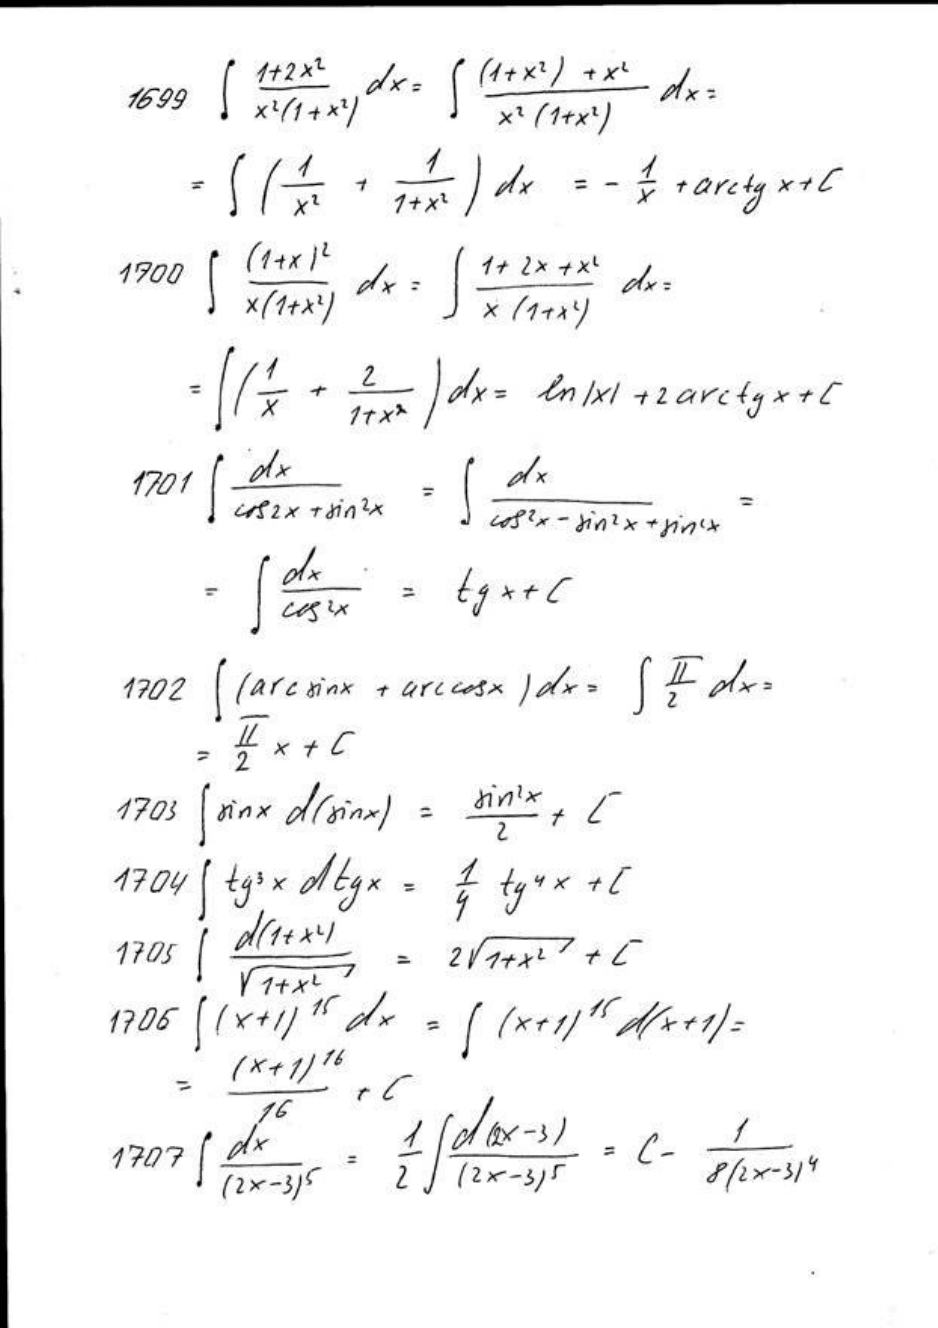 1699 ∫ (1+2x²)/(x²(1+x²)) dx = ∫ ((1+x²) + x²)/(x²(1+x²)) dx =
= ∫ (1/x² + 1/(1+x²)) dx = - 1/x + arctg x + C
1700 ∫ (1+x)²/(x(1+x²)) dx = ∫ (1+2x+x²)/(x(1+x²)) dx =
= ∫ (1/x + 2/(1+x²)) dx = ln|x| + 2 arctg x + C
1701 ∫ dx/(cos2x + sin²x) = ∫ dx/(cos²x - sin²x + sin²x) =
= ∫ dx/cos²x = tg x + C
1702 ∫ (arcsinx + arccosx) dx = ∫ π/2 dx =
= π/2 x + C
1703 ∫ sinx d(sinx) = sin²x/2 + C
1704 ∫ tg³x dtgx = 1/4 tg⁴x + C
1705 ∫ d(1+x²)/√(1+x²) = 2√(1+x²) + C
1706 ∫ (x+1)¹⁵ dx = ∫ (x+1)¹⁵ d(x+1) =
= (x+1)¹⁶/16 + C
1707 ∫ dx/(2x-3)⁵ = 1/2 ∫ d(2x-3)/(2x-3)⁵ = C - 1/(8(2x-3)⁴